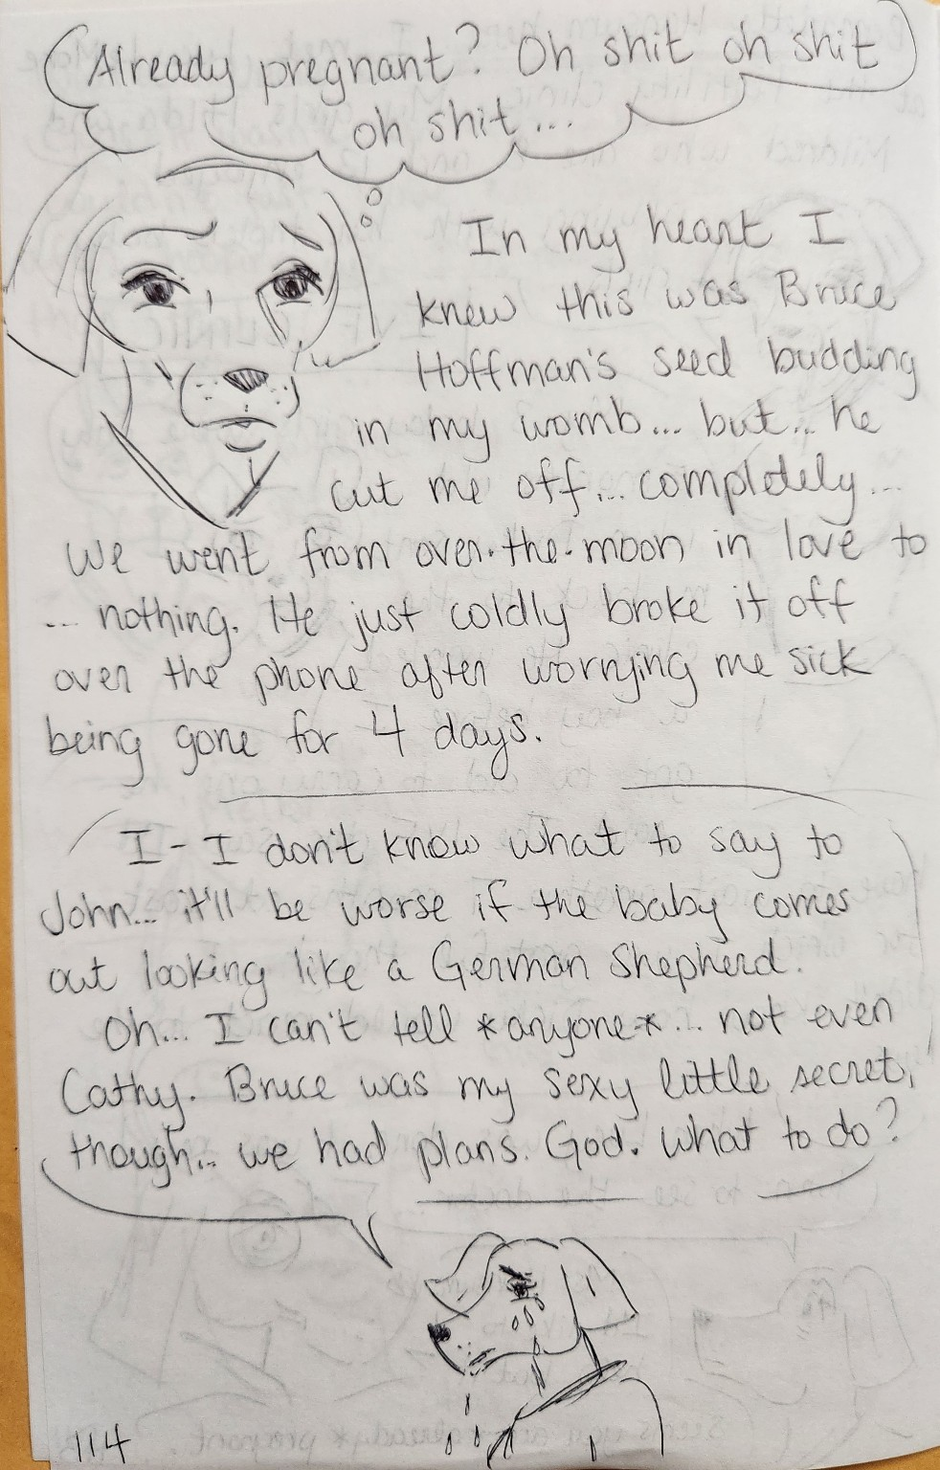 Already pregnant? Oh shit oh shit
oh shit...
In my heart I
knew this was Bruce
Hoffman's seed budding
in my womb... but... he
cut me off... completely...
We went from over-the-moon in love to
... nothing. He just coldly broke it off
over the phone after worrying me sick
being gone for 4 days.
I-I don't know what to say to
John... it'll be worse if the baby comes
out looking like a German Shepherd.
Oh... I can't tell *anyone*... not even
Cathy. Bruce was my sexy little secret,
though... we had plans. God. What to do?
114